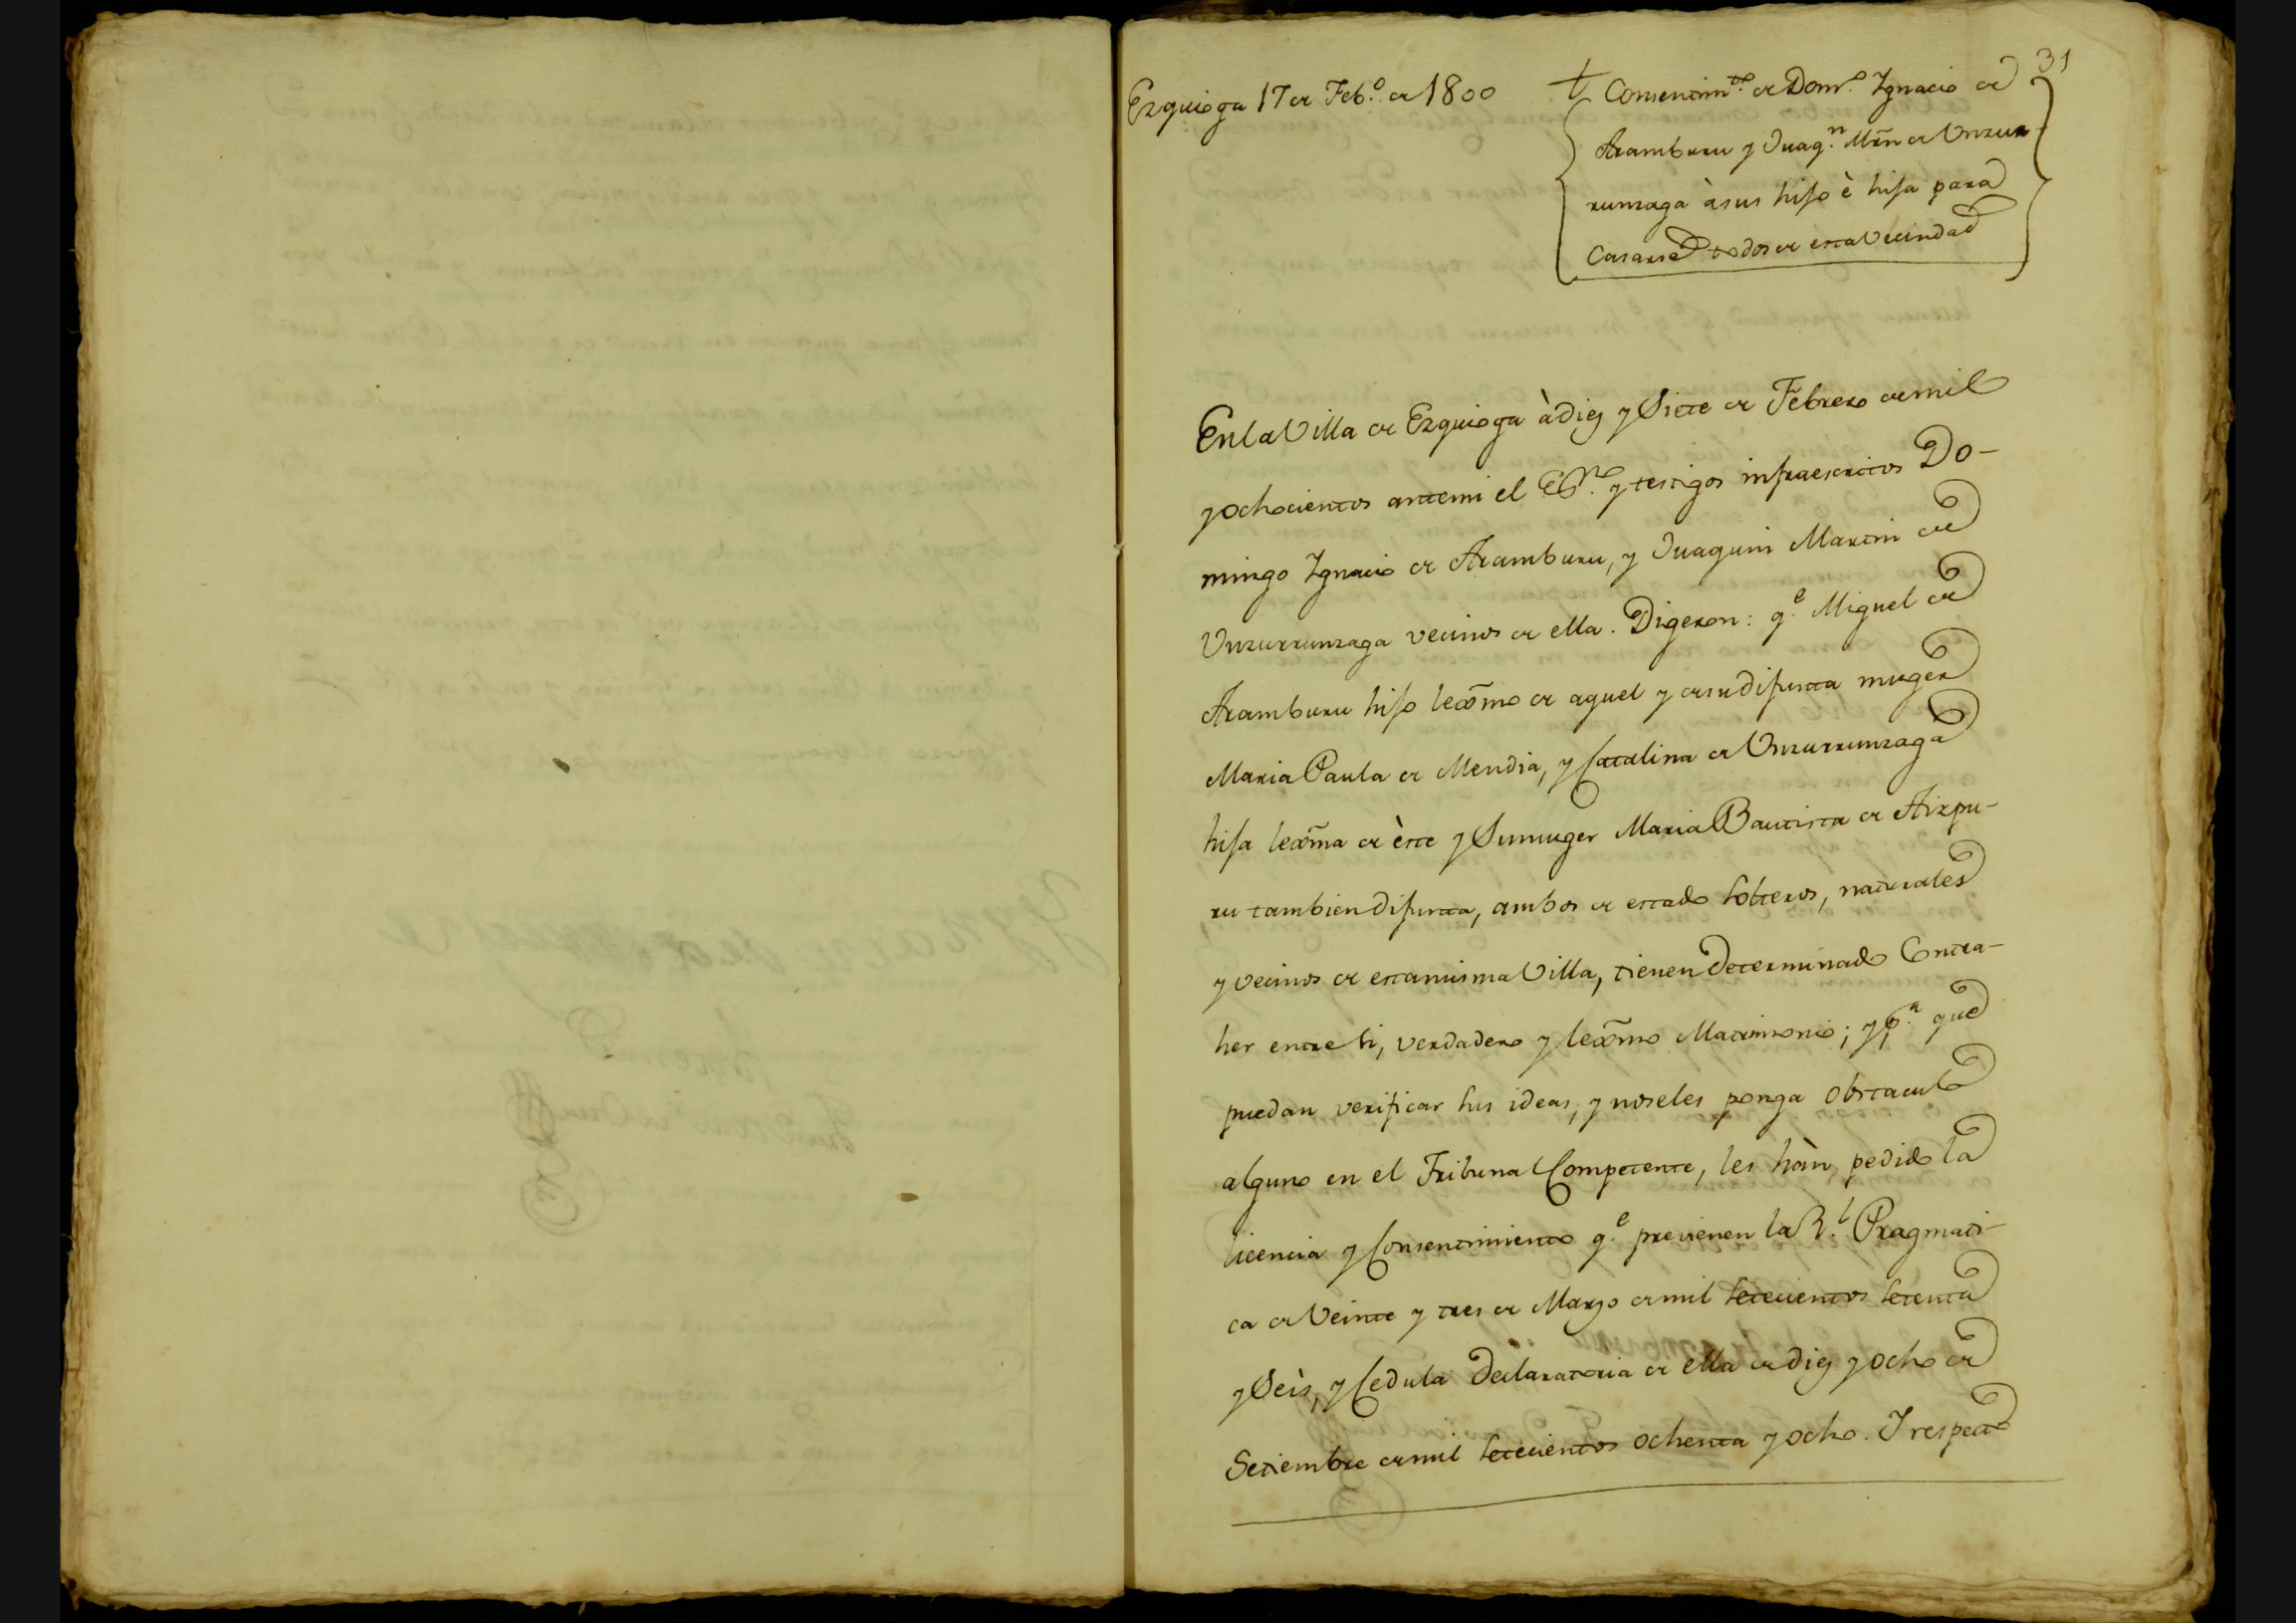 31
Ezquioga 17 de Feb.o de 1800
Consentim.to de Dom.o Ygnacio de
Aramburu y Juaq.n Mrn de Unzur-
runzaga à sus hijo è hija para
Casarse todos de esta Vecindad
En la Villa de Ezquioga à diez y Siete de Febrero de mil
y ochocientos ante mi el Es.no y testigos infraescritos Do-
mingo Ygnacio de Aramburu, y Juaquin Martin de
Unzurrunzaga vecinos de ella. Digeron: q.e Miguel de
Aramburu hijo lexmo de aquel y de su difunta muger
Maria Paula de Mendia, y Catalina de Unzurrunzaga
hija lexma de èste y Su muger Maria Bautista de Aizpu-
ru tambien difunta, ambos de estado Solteros, naturales
y vecinos de esta misma Villa, tienen determinado Contra-
her entre si, verdadero y lexmo Matrimonio; y p.a que
puedan verificar sus ideas, y no se les ponga obstaculo
alguno en el Tribunal Competente, les hàn pedido la
licencia y Consentimiento q.e previenen la R.l Pragmati-
ca de Veinte y tres de Marzo de mil setecientos setenta
y Seis, y Cedula Declaratoria de ella de diez y ocho de
Setiembre de mil setecientos ochenta y ocho. I respecto